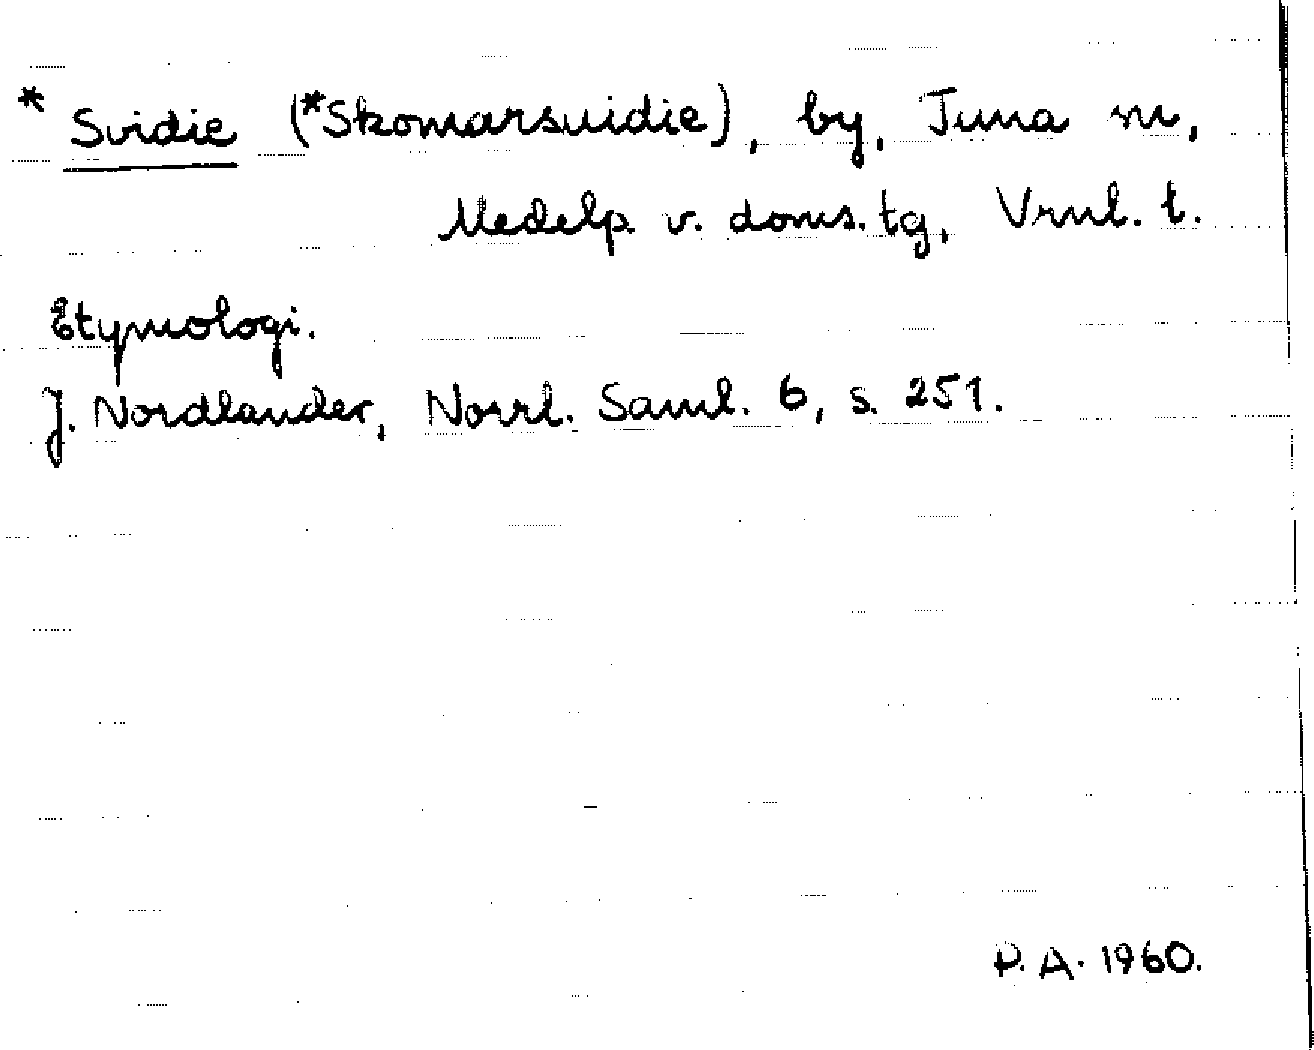 * Svidie (*Skomarsvidie), by, Tuna sn,
Medelp. v. doms. tg, Vrnl. t.
Etymologi.
J. Nordlander, Norrl. Saml. 6, s. 251.
P. A. 1960.